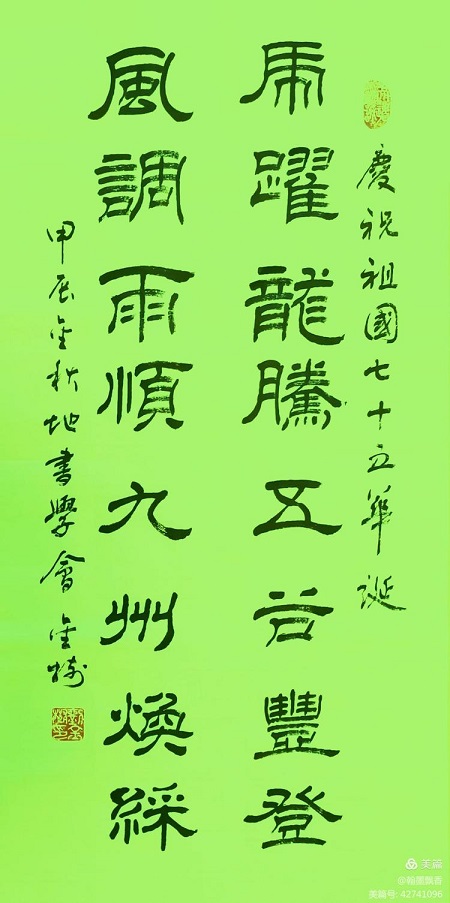 慶祝祖國七十五華誕
虎躍龍騰五谷豐登
風調雨順九州煥綵
甲辰金秋地書學會金樹
美篇
@翰墨飘香
美篇号: 42741096